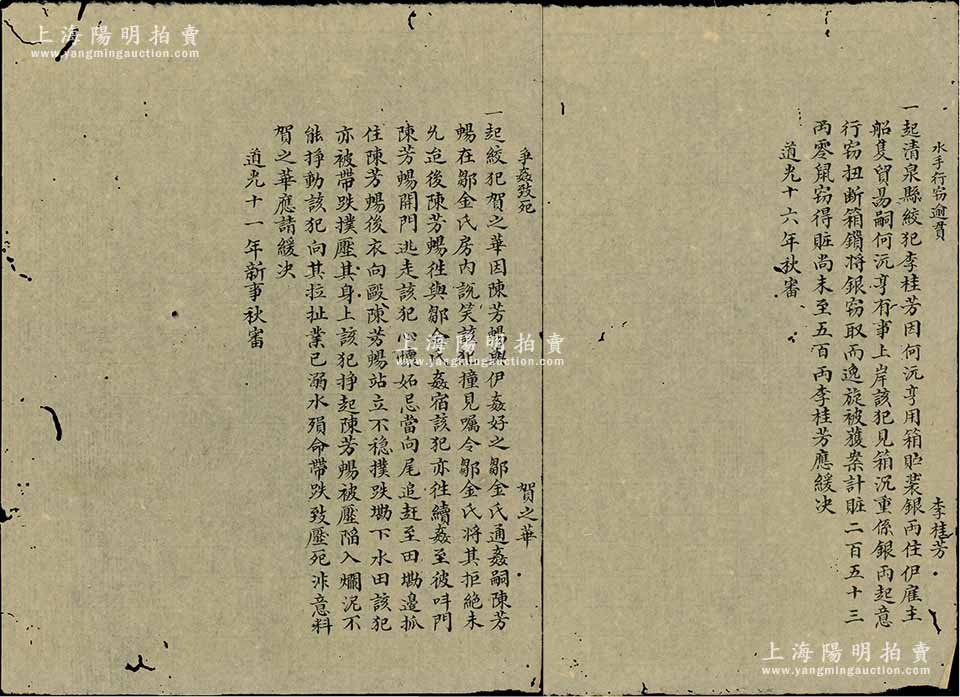 上海陽明拍賣
www.yangmingauction.com
水手行窃逾貫
李桂芳
一起清泉縣絞犯李桂芳因何沅亨用箱貯裝銀兩住伊雇主
船隻貿易嗣何沅亨有事上岸該犯見箱沉重係銀兩起意
行窃扭断箱鎖将銀窃取而逸旋被獲案計賍二百五十三
兩零鼠窃得賍尚未至五百兩李桂芳應緩决
道光十六年秋審
争姦致死
賀之華
一起絞犯賀之華因陳芳暢與伊姦好之鄒金氏通姦嗣陳芳
暢在鄒金氏房内説笑該犯撞見嘱令鄒金氏将其拒絶未
允迨後陳芳暢徃與鄒金氏姦宿該犯亦徃續姦至彼呌門
陳芳暢開門逃走該犯心懷妬忌當向尾追赶至田塝邉抓
住陳芳暢後衣向毆陳芳暢站立不穏撲跌塝下水田該犯
亦被帶跌撲壓其身上該犯掙起陳芳暢被壓陷入爛泥不
能掙動該犯向其拉扯業已溺水殞命帶跌致壓死非意料
賀之華應請緩决
道光十一年新事秋審
上海陽明拍賣
www.yangmingauction.com
上海陽明拍賣
www.yangmingauction.com